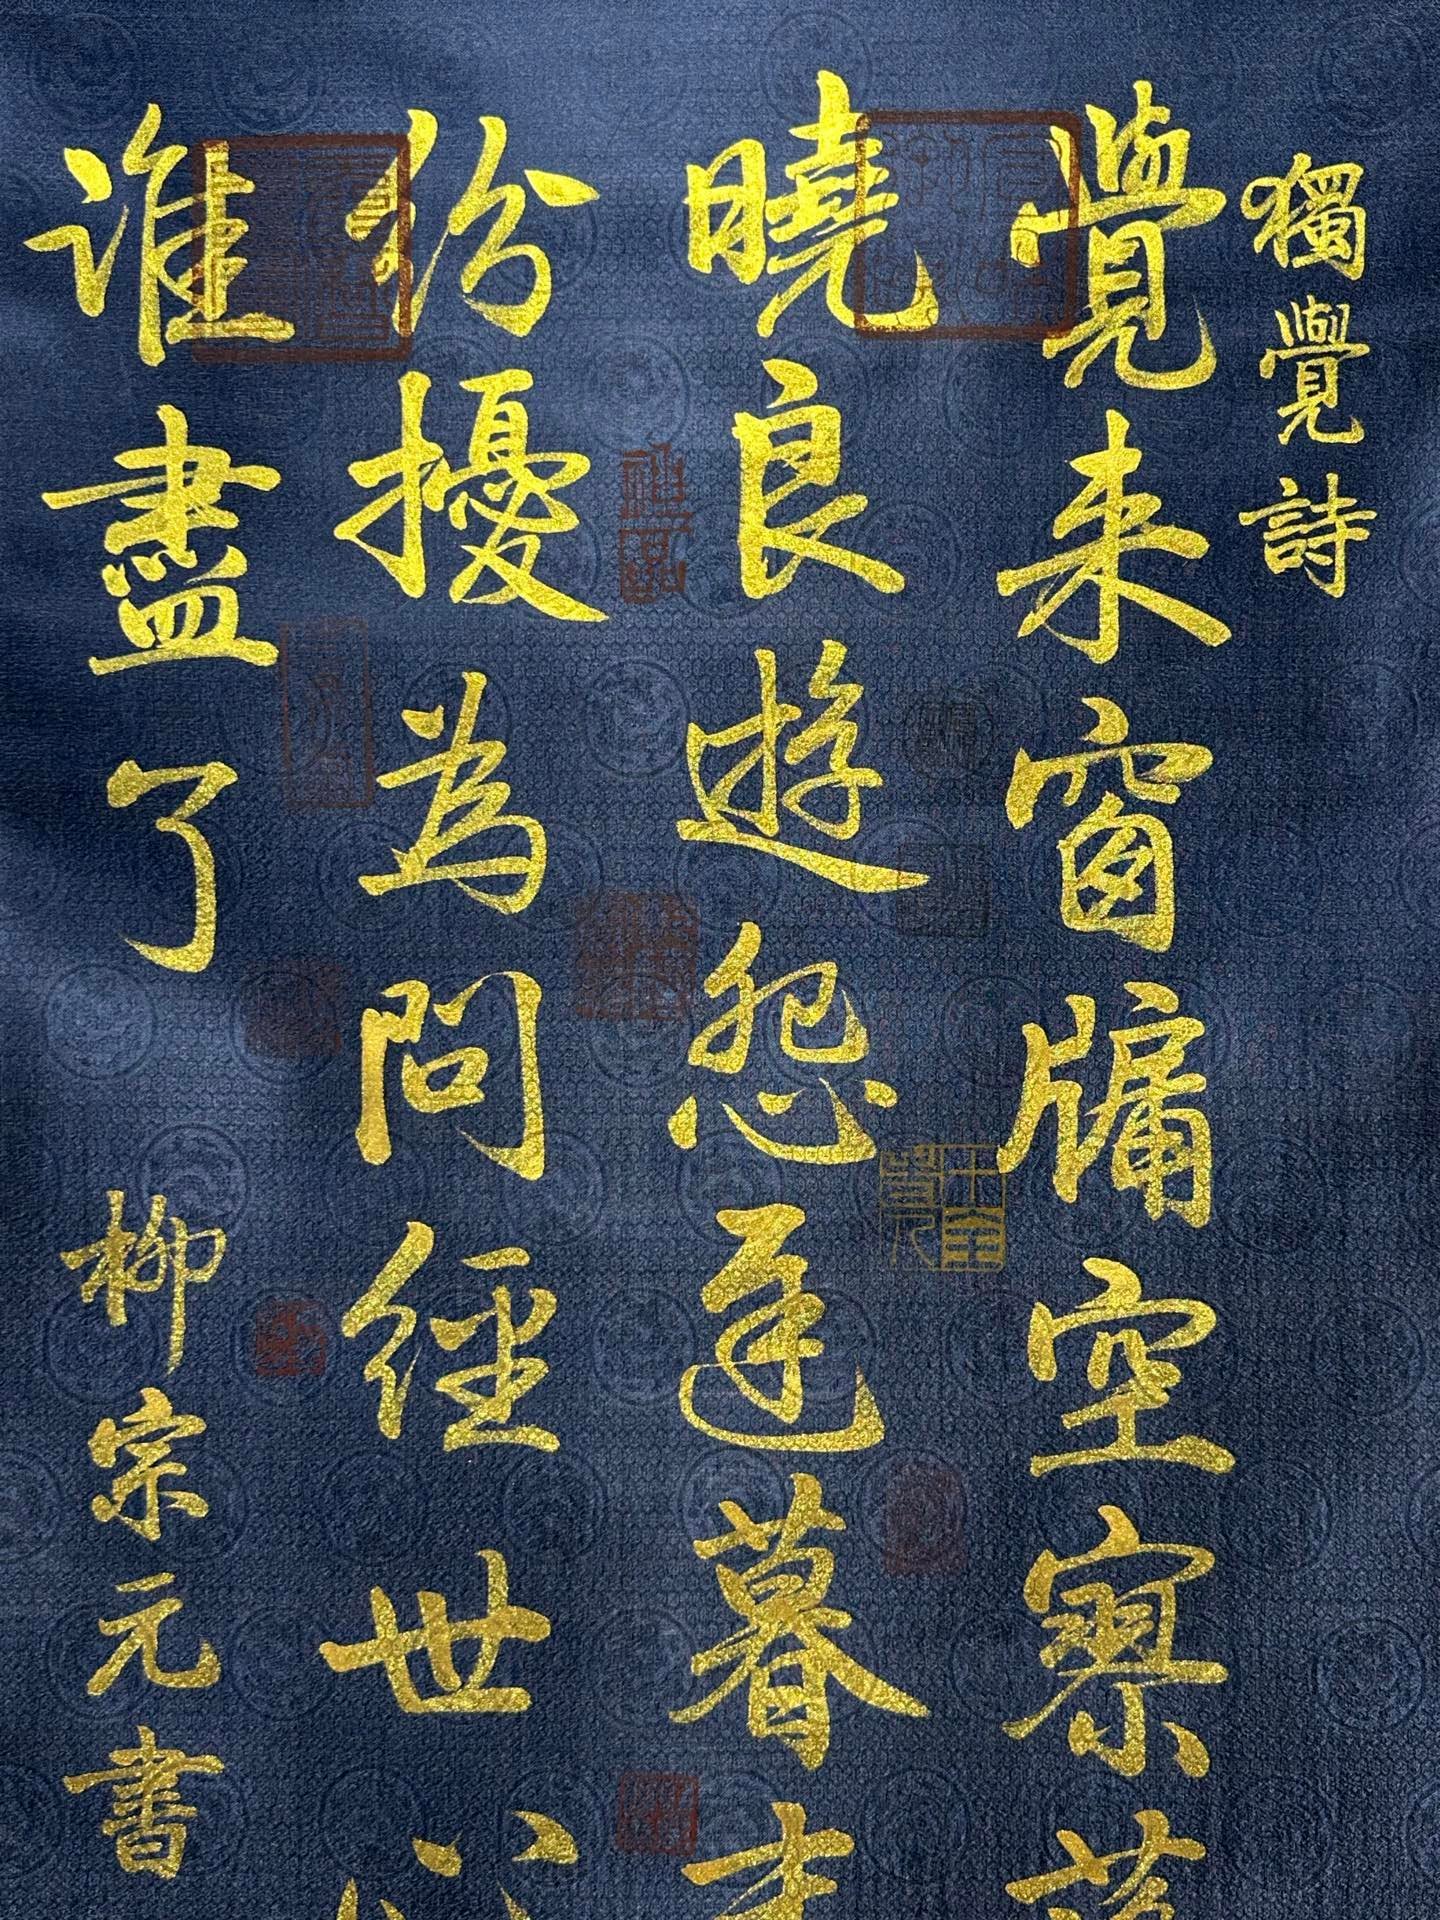 獨覺詩
覺来窗牖空寥落
曉良遊怨遲暮末
紛擾為問經世心
誰盡了
柳宗元書